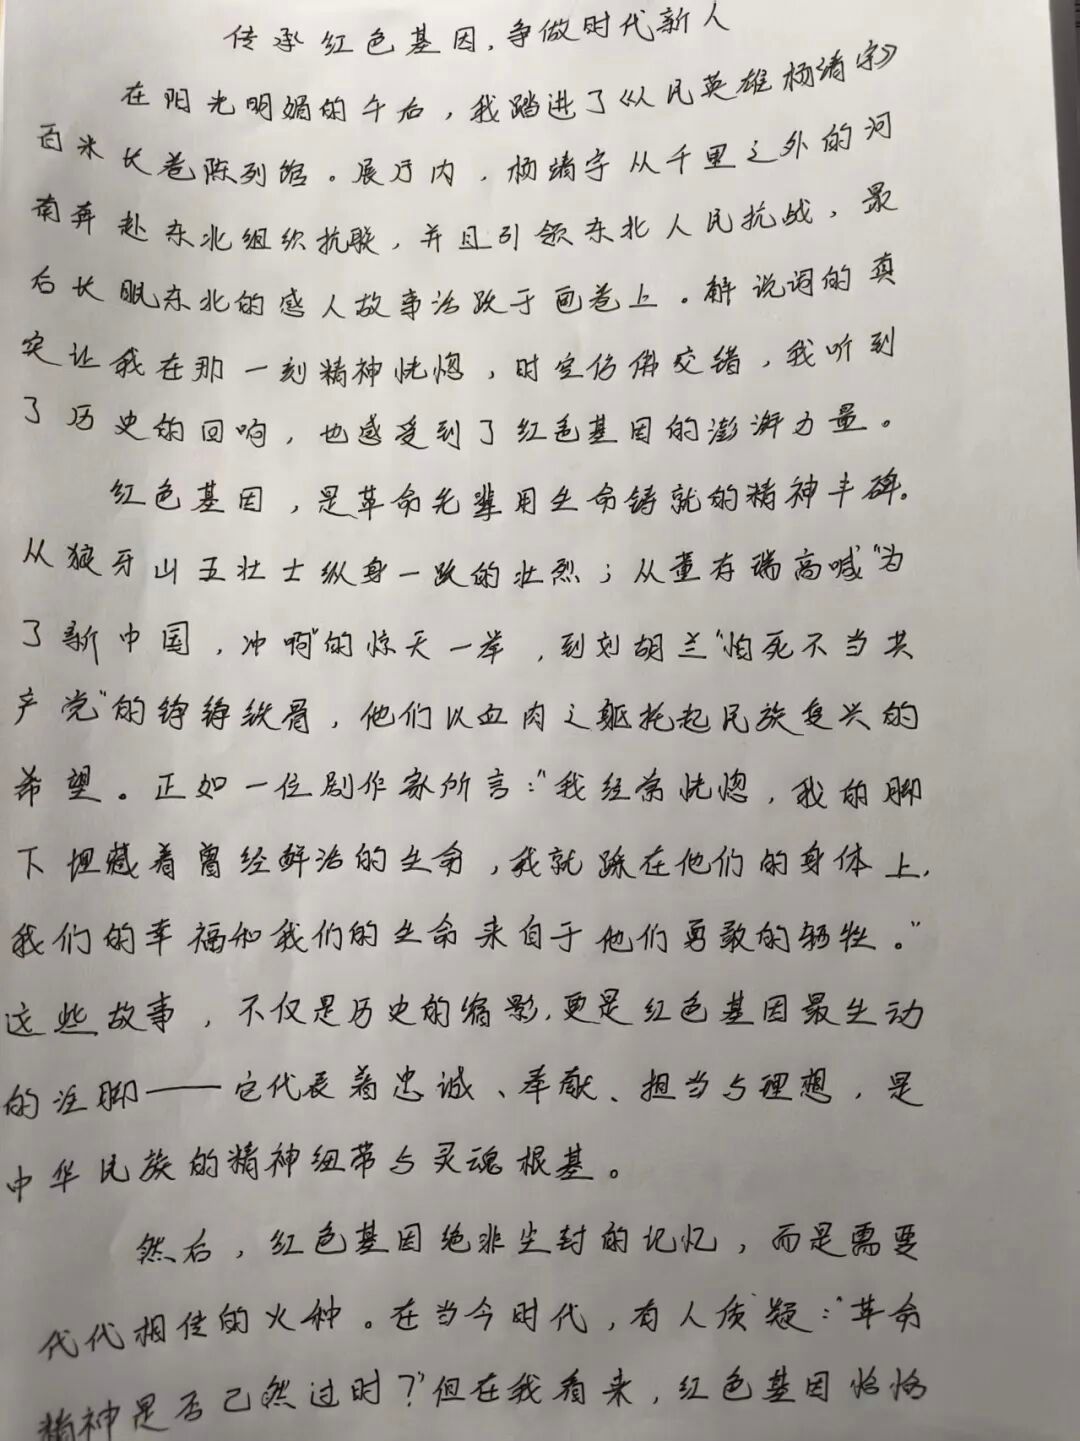 传承红色基因,争做时代新人
在阳光明媚的午后,我踏进了《人民英雄杨靖宇》
百米长卷陈列馆。展厅内,杨靖宇从千里之外的河
南奔赴东北组织抗联,并且引领东北人民抗战,最
后长眠东北的感人故事活跃于画卷上。解说词的真
实让我在那一刻精神恍惚,时空仿佛交错,我听到
了历史的回响,也感受到了红色基因的澎湃力量。
红色基因,是革命先辈用生命铸就的精神丰碑。
从狼牙山五壮士纵身一跃的壮烈;从董存瑞高喊"为
了新中国,冲啊"的惊天一举,到刘胡兰"怕死不当共
产党"的铮铮铁骨,他们以血肉之躯托起民族复兴的
希望。正如一位剧作家所言:"我经常恍惚,我的脚
下埋藏着曾经鲜活的生命,我就踩在他们的身体上,
我们的幸福和我们的生命来自于他们勇敢的牺牲。"
这些故事,不仅是历史的缩影,更是红色基因最生动
的注脚——它代表着忠诚、奉献、担当与理想,是
中华民族的精神纽带与灵魂根基。
然后,红色基因绝非尘封的记忆,而是需要
代代相传的火种。在当今时代,有人质疑:"革命
精神是否已然过时?"但在我看来,红色基因恰恰